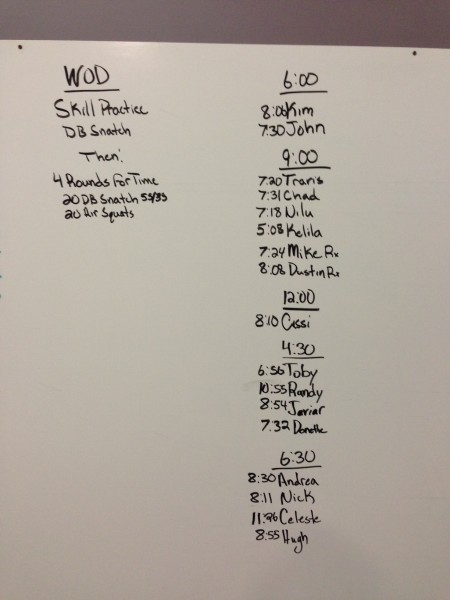 WOD
Skill Practice
DB Snatch
Then:
4 Rounds For Time
20 DB Snatch 55/35
20 Air Squats
6:00
8:00 Kim
7:30 John
9:00
7:20 Travis
7:31 Chad
7:18 Nilu
5:08 Kelila
7:24 Mike Rx
8:08 Dustin Rx
12:00
8:10 Cassi
4:30
6:56 Toby
10:55 Randy
8:54
7:32
6:30
8:30 Andrea
8:11 Nick
Celeste
8:55 Hugh